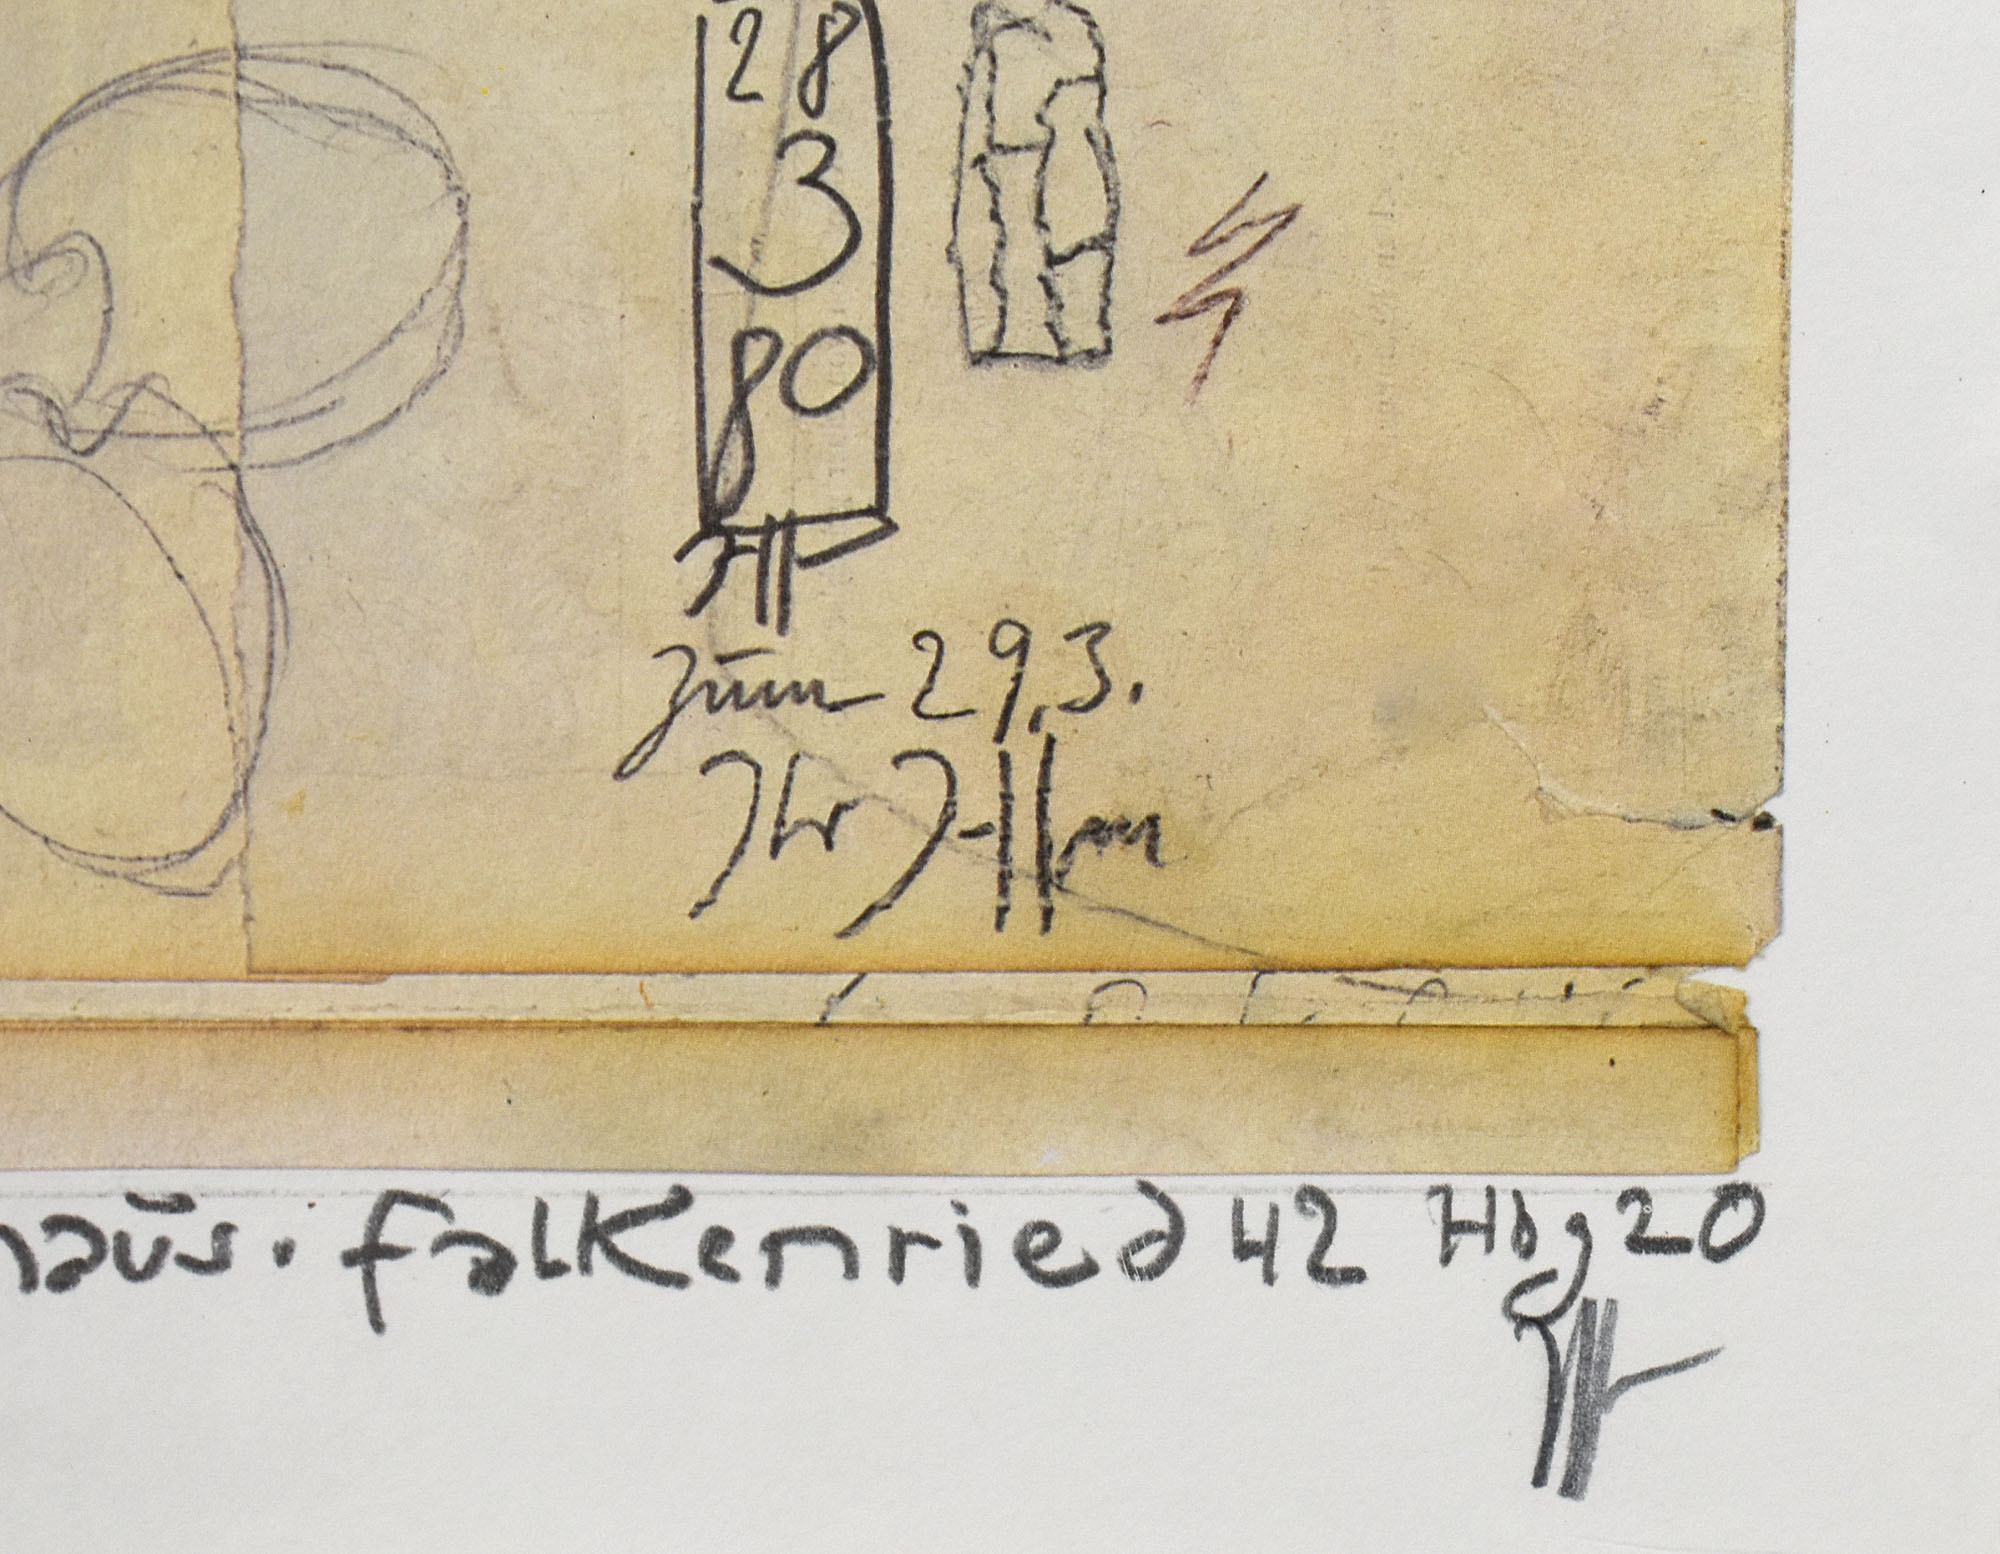 28
3
80
zum 29.3.
Ihr
haus. Falkenried 42 Hbg 20